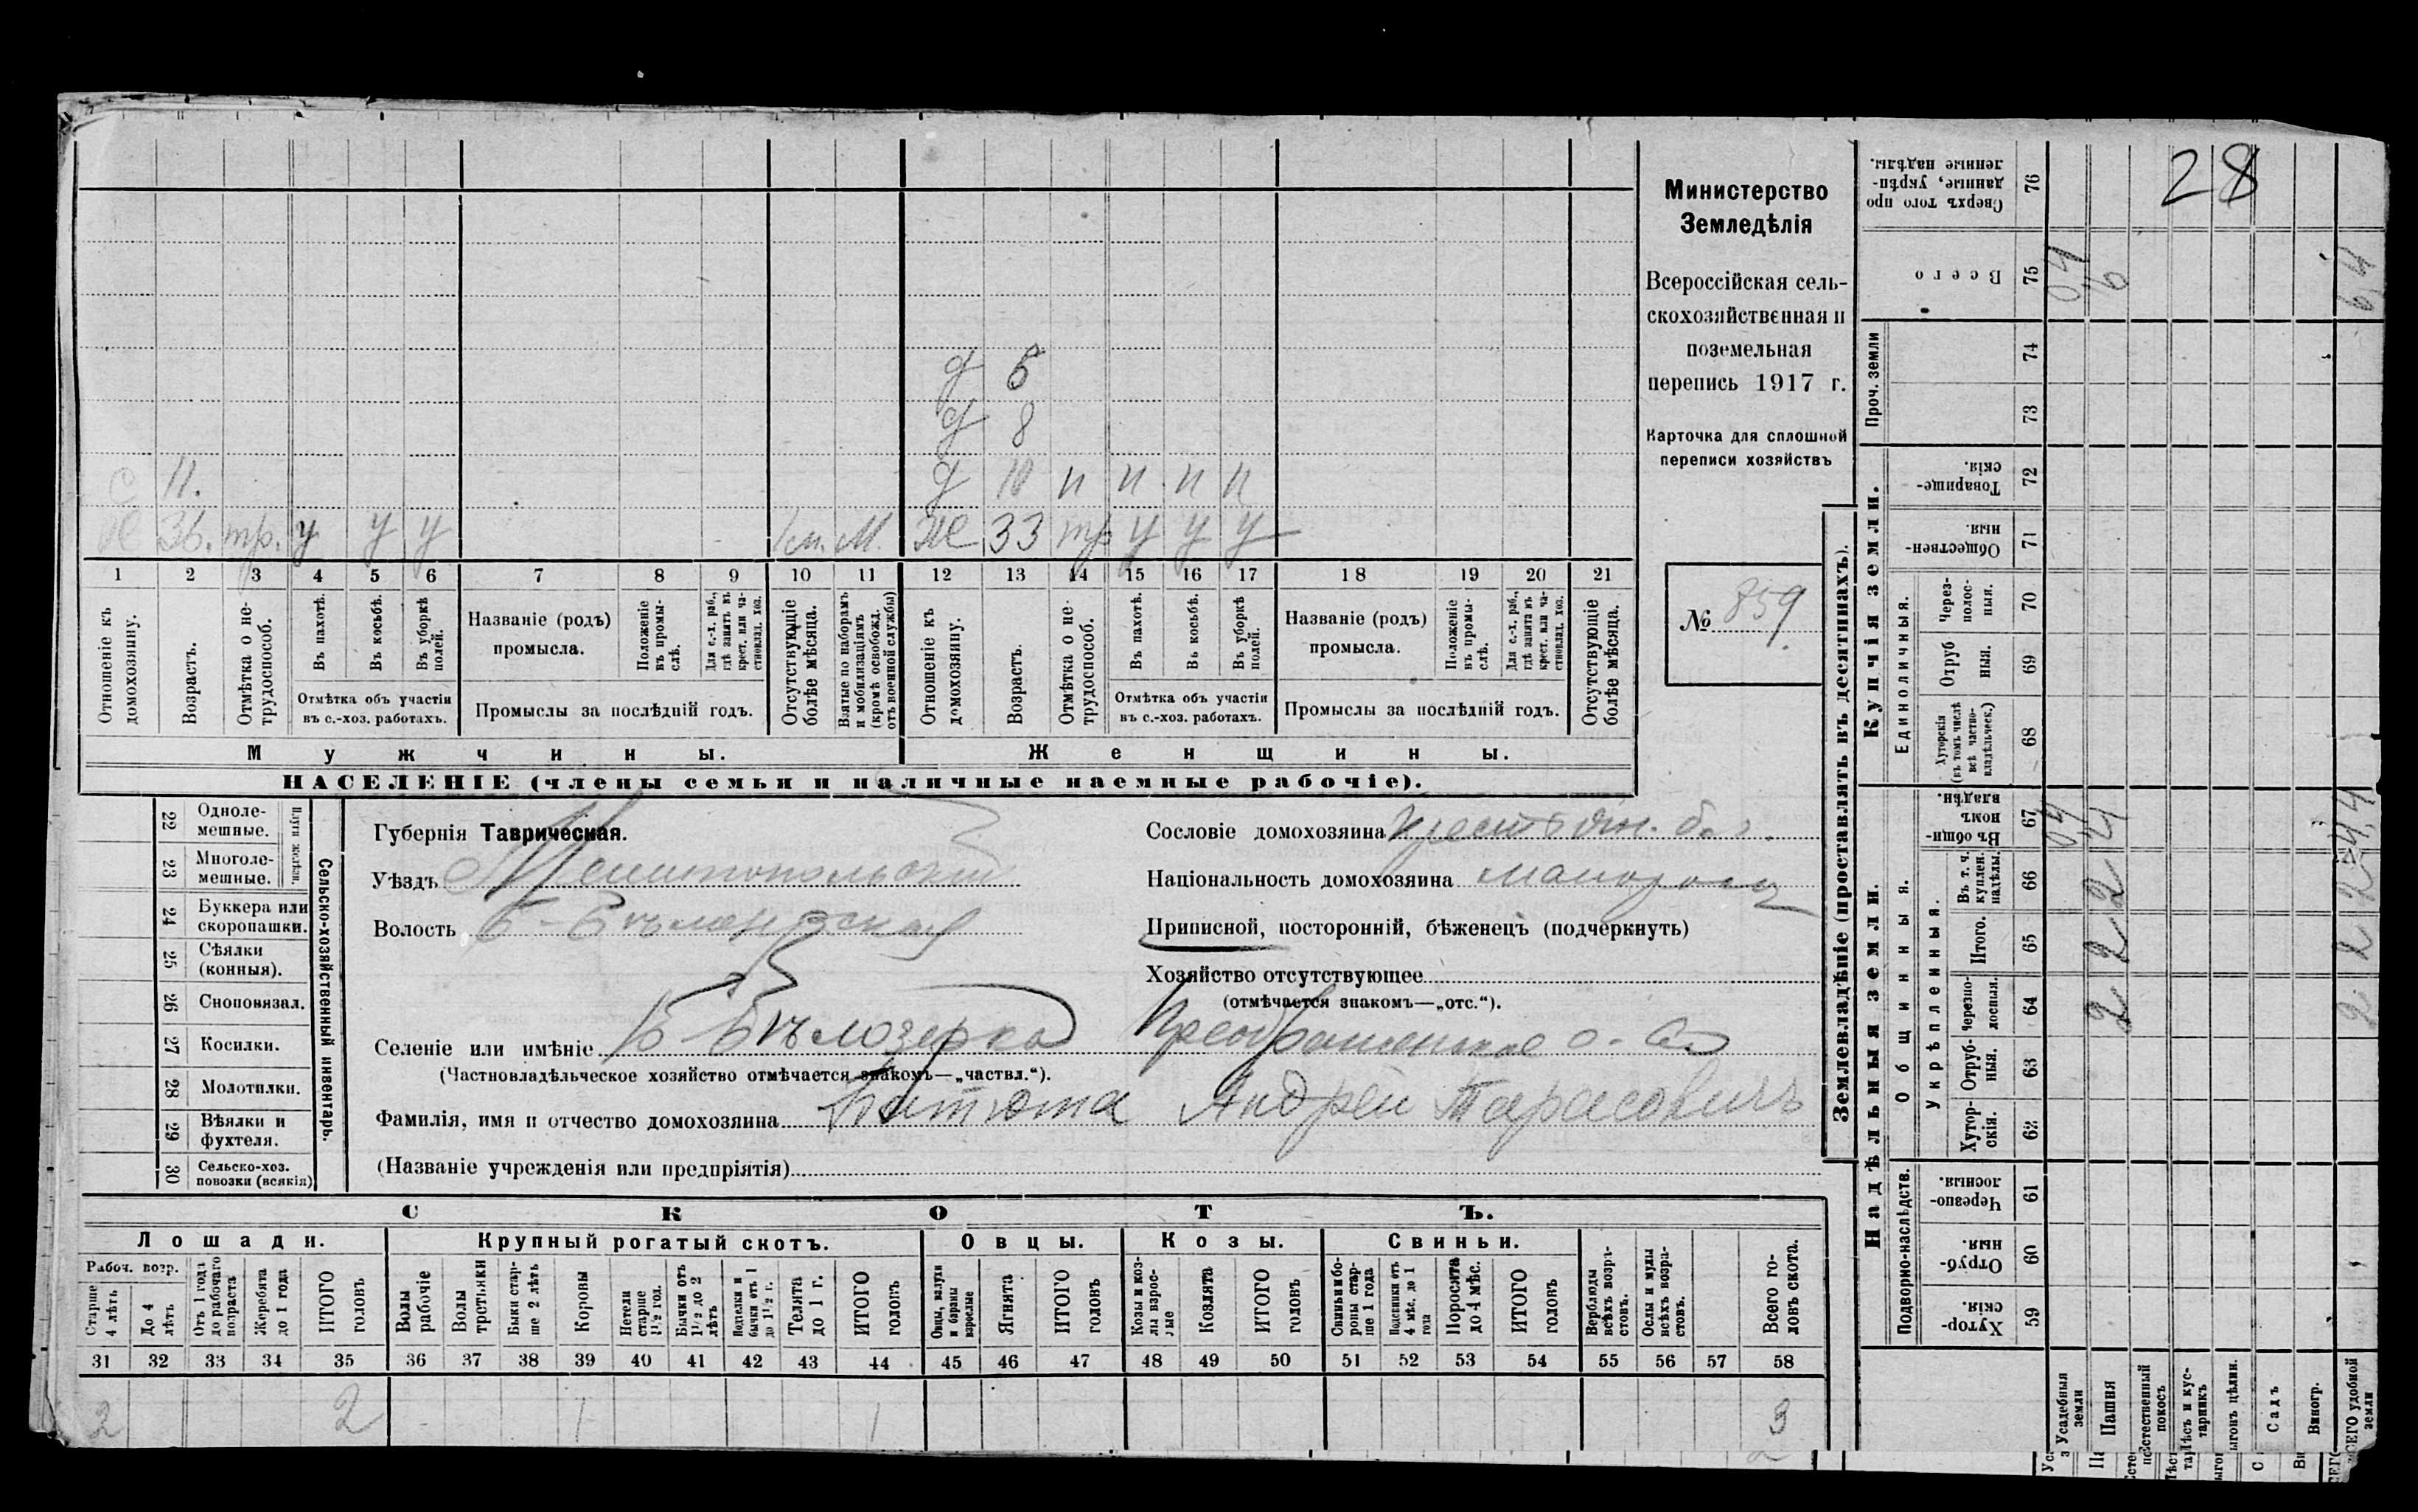 28
Министерство
Земледѣлія
Всероссійская сель-
скохозяйственная и
поземельная
перепись 1917 г.
Карточка для сплошной
переписи хозяйствъ
№ 859.
д 8
д 10 п п п п
с 11.
тр. у у у М. ж 33 тр у у у
1 2 3 4 5 6 7 8 9 10 11 12 13 14 15 16 17 18 19 20 21
Отношеніе къ домохозяину.
Возрастъ.
Отмѣтка о не-трудоспособ.
Въ пахотѣ.
Въ косьбѣ.
Въ уборкѣ полей.
Отмѣтка объ участіи
въ с.-хоз. работахъ.
Названіе (родъ)
промысла.
Положеніе въ промы-слѣ.
Для с.-х. раб., гдѣ занятъ въ крест. или ча-стновлад. хоз.
Промыслы за послѣдній годъ.
Отсутствующіе болѣе мѣсяца.
Взятые по наборамъ и мобилизаціямъ (кромѣ освобожд. отъ военной службы)
Отношеніе къ домохозяину.
Возрастъ.
Отмѣтка о не-трудоспособ.
Въ пахотѣ.
Въ косьбѣ.
Въ уборкѣ полей.
Отмѣтка объ участіи
въ с.-хоз. работахъ.
Названіе (родъ)
промысла.
Положеніе въ промы-слѣ.
Для с.-х. раб., гдѣ занята въ крест. или ча-стновлад. хоз.
Промыслы за послѣдній годъ.
Отсутствующіе болѣе мѣсяца.
Мужчины.
Женщины.
НАСЕЛЕНІЕ (члены семьи и наличные наемные рабочіе).
Сельско-хозяйственный инвентарь.
Плуги желѣзн.
22 Одноле-
мешные.
23 Многоле-
мешные.
24 Буккера или
скоропашки.
25 Сѣялки
(конныя).
26 Сноповязал.
27 Косилки.
28 Молотилки.
29 Вѣялки и
фухтеля.
30 Сельско-хоз.
повозки (всякія)
Губернія Таврическая.
Уѣздъ Мелитопольскій
Волость Б-Бѣлозерская
Селеніе или имѣніе Б Бѣлозерка Преображенское о-во
(Частновладѣльческое хозяйство отмѣчается знакомъ—„частвл.“).
Фамилія, имя и отчество домохозяина Андрей Тарасовичъ
(Названіе учрежденія или предпріятія)
Сословіе домохозяина
Національность домохозяина малоросъ
Приписной, посторонній, бѣженецъ (подчеркнуть)
Хозяйство отсутствующее
(отмѣчается знакомъ—„отс.“).
СКОТЪ.
Лошади.
Крупный рогатый скотъ.
Овцы.
Козы.
Свиньи.
Рабоч. возр.
Старше 4 лѣтъ
До 4 лѣтъ
Отъ 1 года до рабочаго возраста
Жеребята до 1 года
ИТОГО головъ
Волы рабочіе
Волы третьяки
Быки стар-ше 2 лѣтъ
Коровы
Нетели старше 1½ год.
Бычки отъ 1½ до 2 лѣтъ
Подтелки и бычки отъ 1 до 1½ г.
Телята до 1 г.
ИТОГО головъ
Овцы, валухи и бараны взрослые
Ягнята
ИТОГО головъ
Козы и коз-лы взрос-лые
Козлята
ИТОГО головъ
Свиньи и бо-ровы стар-ше 1 года
Подсвинки отъ 4 мѣс. до 1 года
Поросята до 4 мѣс.
ИТОГО головъ
Верблюды всѣхъ возра-стовъ.
Ослы и мулы всѣхъ возра-стовъ.
Всего го-ловъ скота.
31 32 33 34 35 36 37 38 39 40 41 42 43 44 45 46 47 48 49 50 51 52 53 54 55 56 57 58
2 2 - 1 1 3
Землевладѣніе (проставлять въ десятинахъ).
Надѣльныя земли.
Купчія земли.
Проч. земли
Сверхъ того про данные, укрѣп-ленные надѣлы. 76
Всего 75 04 6 6,4
74
73
Товарище-скія. 72
Обществен-ныя. 71
Единоличныя.
Через-полос-ныя. 70
Отруб ныя. 69
Хуторскія (въ томъ числѣ всѣ частно-владѣльческ.) 68
Общинныя.
Въ общи-номъ владѣн. 67 04 4 4,4
Укрѣпленныя.
Въ т. ч. куплен. надѣлы. 66 2 2
Итого. 65 2 2
Черезпо-лосныя. 64 2 2
Отруб-ныя. 63
Хутор-скія. 62
Подворно-наслѣдств.
Черезпо-лосныя. 61
Отруб-ныя. 60
Хутор-скія. 59
Усадебныя земли
Пашня
Естественный покосъ
Лѣсъ и кус-тарникъ
Садъ
Виногр.